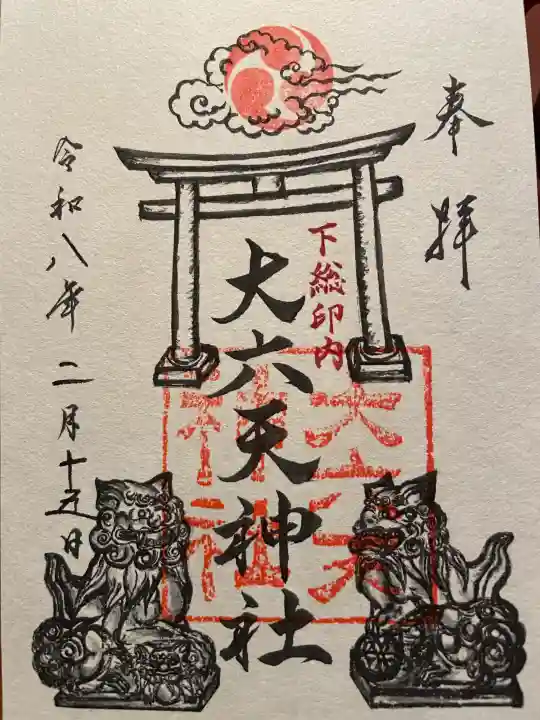 奉拝
下総印内
大六天神社
大六天
神社
令和八年二月十五日